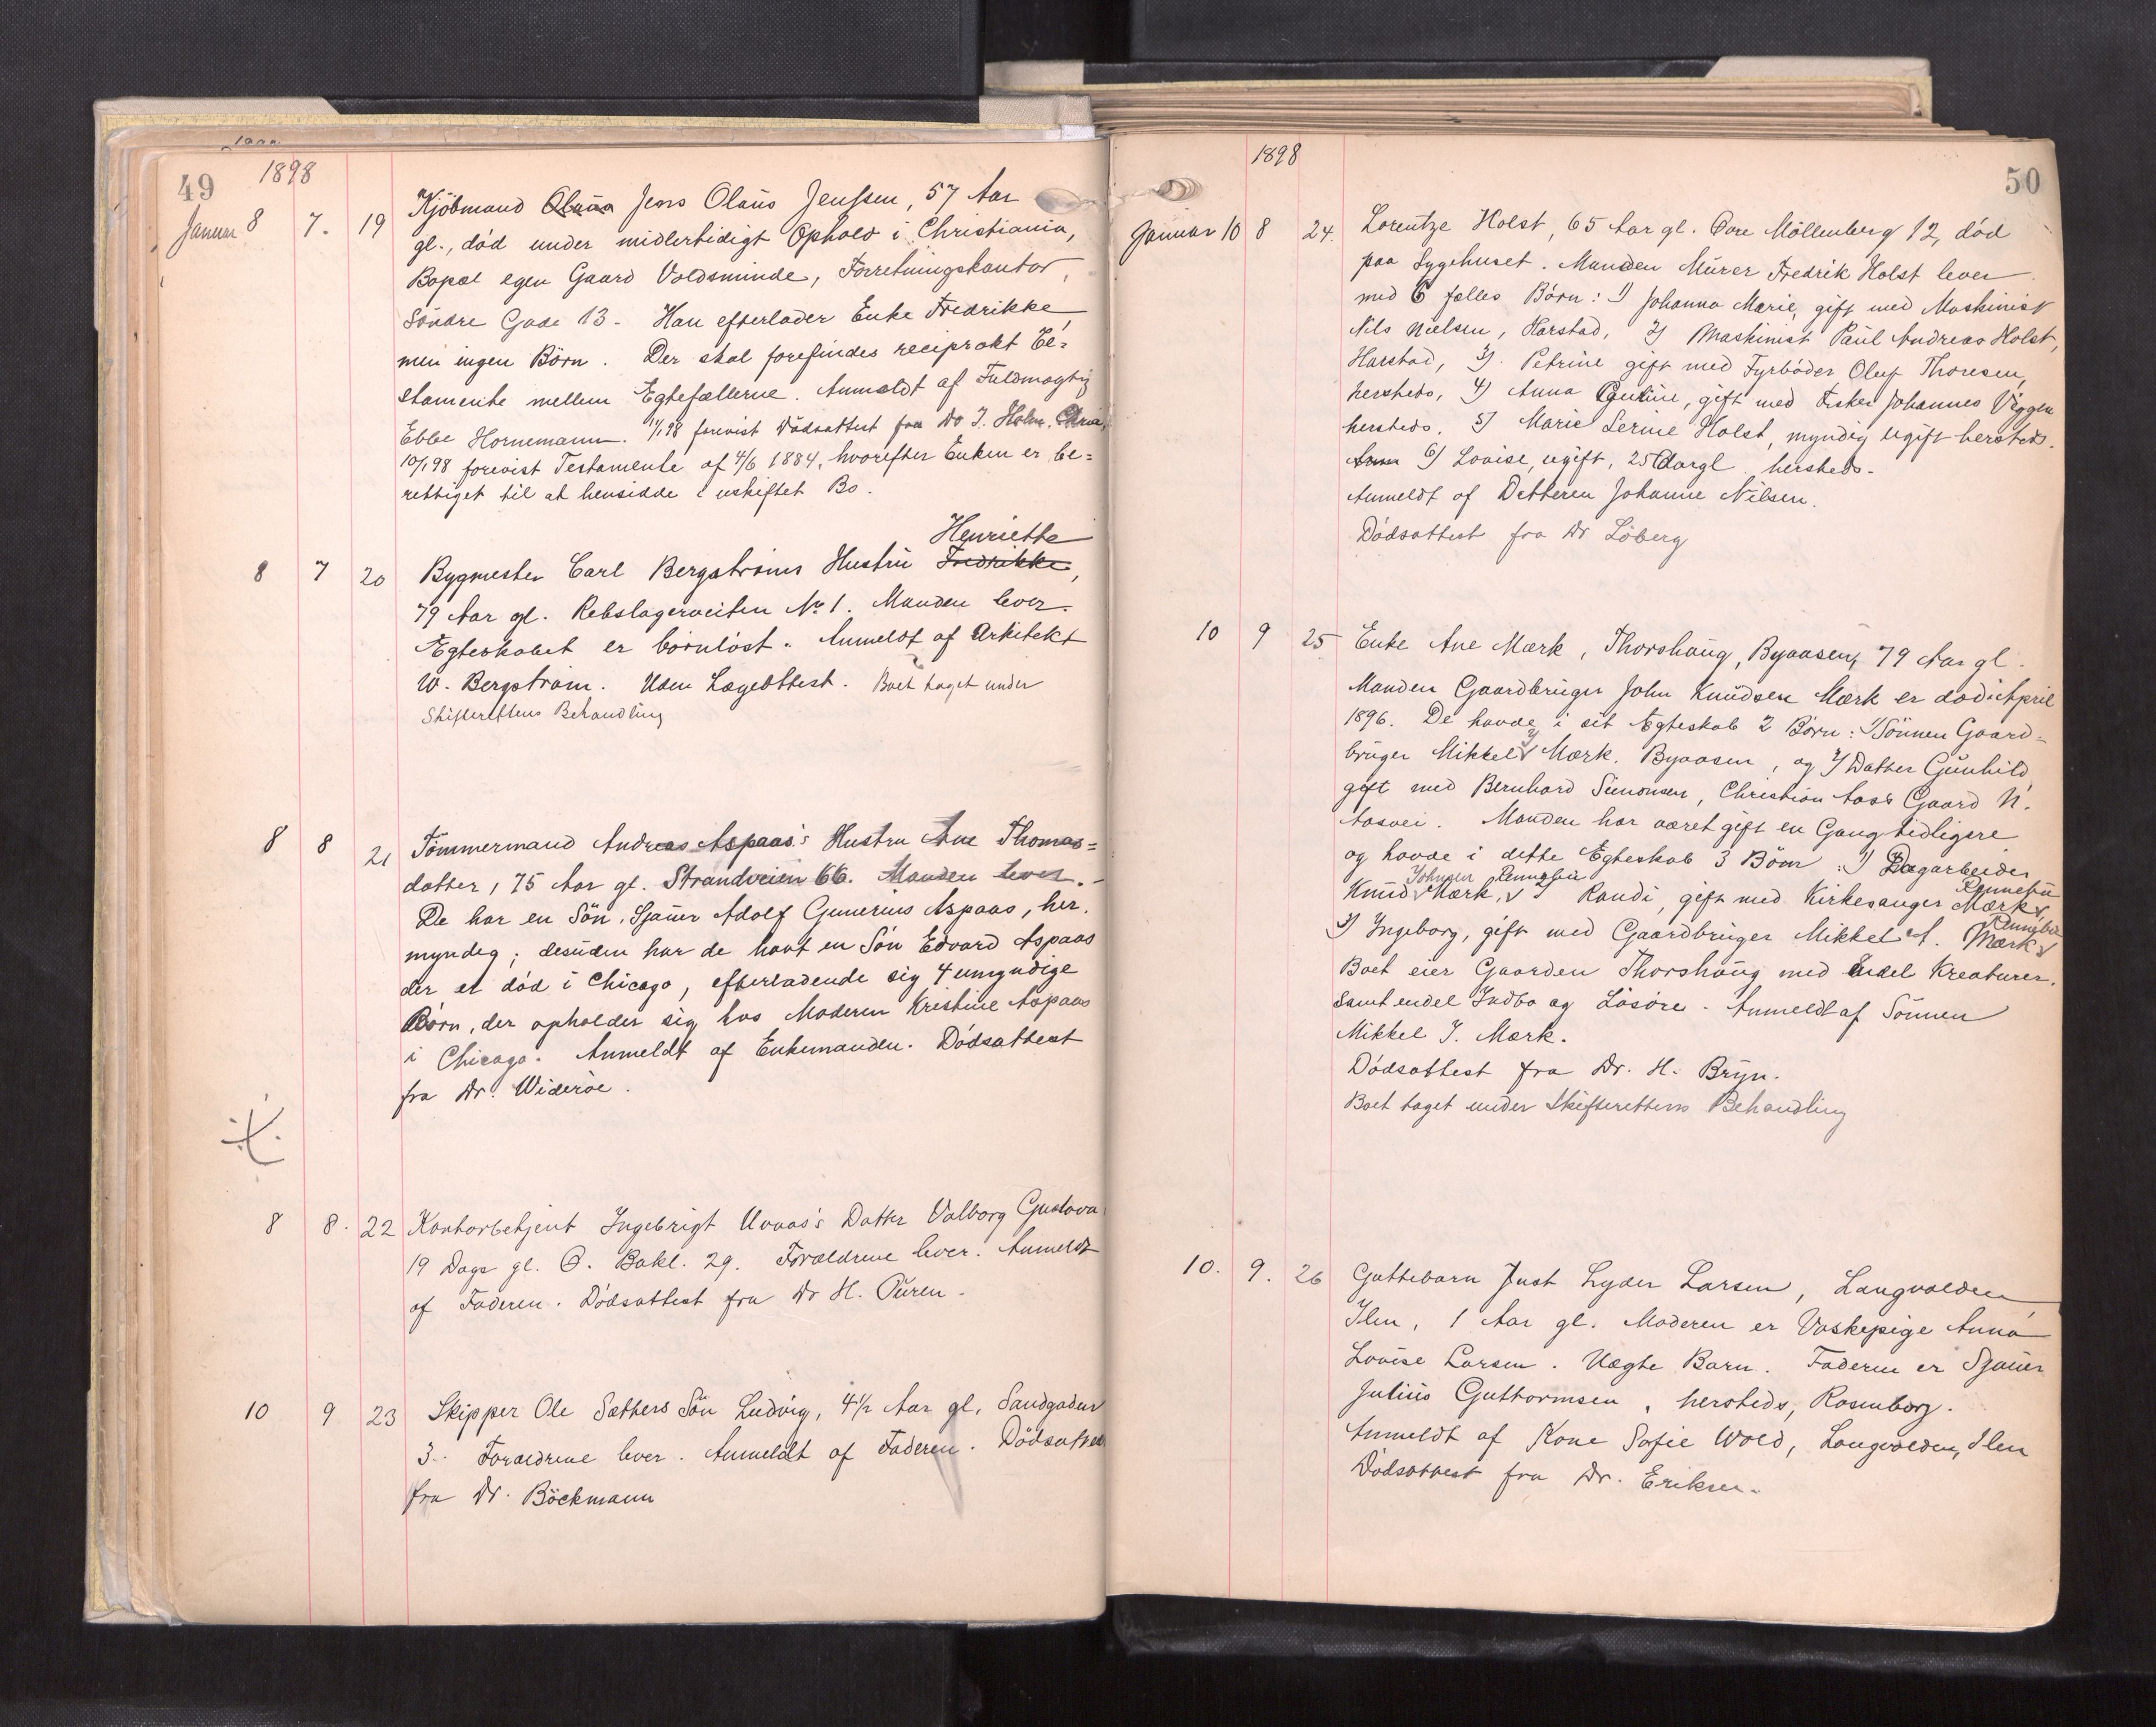 49
1898
Januar 8 7. 19 Kjöbmand Olaus Jens Olaus Jenssen, 57 Aar
gl., död under midlertidigt Ophold i Christiania,
Bopæl egen Gaard Voldsminde, Forretningskontor,
Söndre Gade 13. Han efterlader Enke Fredrikke,
men ingen Börn. Der skal forefindes reciprokt Te=
stamente mellem Egtefællerne. Anmeldt af Fuldmægtig
Ebbe Hornemann. 11/1 98 forevist Dödsattest fra Dr J. Holm, Chria,
10/1 98 forevist Testamente af 4/6 1884, hvorefter Enken er be=
rettiget til at hensidde i uskiftet Bo.
Henriette
8 7 20 Bygmester Carl Bergströms Hustru Fredrikke,
79 Aar gl. Rebslagerveiten No 1. Manden lever.
Egteskabet er börnlöst. Anmeldt af Arkitekt
W. Bergström. Uden Lægeattest. Boet taget under
Skifterettens Behandling
8 8 21 Tömmermand Andreas Aspaas's Hustru Ane Thomas=
datter, 75 Aar gl. Strandveien 66. Manden lever.-
De har en Sön, Sjauer Adolf Gunerius Aspaas, her,
myndig; desuden har de havt en Sön Edvard Aspaas
der er död i Chicago, efterladende sig 4 umyndige
Börn, der opholder sig hos Moderen Kristine Aspaas
i Chicago. Anmeldt af Enkemanden. Dödsattest
fra Dr. Wideröe.
8 8. 22 Kontorbetjent Ingebrigt Uvaas's Datter Valborg Gustava
19 Dage gl. Ö. Bakl. 29. Forældrene lever. Anmeldt
af Faderen. Dödsattest fra Dr H. Øüren.
10 9 23 Skipper Ole Sæthers Sön Ludvig, 4½ Aar gl, Sandgaden
3. Forældrene lever. Anmeldt af Faderen. Dödsattest
fra Dr. Böckmann
1898
50
Januar 10 8 24. Lorentze Holst, 65 Aar gl. Övre Möllenberg 12, död
paa Sygehuset. Manden Murer Fredrik Holst lever
med 6 fælles Börn: 1) Johanna Marie, gift med Maskinist
Nils Nielsen, Harstad, 2) Maskinist Paul Andreas Holst,
Harstad, 3) Petrine gift med Fyrböder Oluf Thoresen,
hersteds, 4) Anna Guline, gift med Fisker Johannes Viggen
hersteds. 5) Marie Serine Holst, myndig ugift hersteds.
6) Lovise, ugift, 25 Aar gl hersteds.
Anmeldt af Datteren Johanne Nilsen.
Dödsattest fra Dr Löberg
10 9 25 Enke Ane Mærk, Thorshaug, Byaasen, 79 Aar gl.
Manden Gaardbruger John Knudsen Mærk er död i April
1896. De havde i sit Ægteskab 2 Börn: 1) Sönnen Gaard=
bruger Mikkel J Mærk, Byaasen, og 2) Datter Gunhild
gift med Bernhard Simonsen, Christian Aas's Gaard N.
Aasvei. Manden har været gift en Gang tidligere
og havde i dette Egteskab 3 Börn: 1) Dagarbeider
Johnsen Rennebu Rennebu
Knud Mærk, 2) Randi, gift med Kirkesanger Mærk,
Rennebu
3) Ingeborg, gift med Gaardbruger Mikkel A. Mærk
Boet eier Gaarden Thorshaug med endel Kreaturer,
samt endel Indbo og Lösöre. Anmeldt af Sönnen
Mikkel J. Mærk.
Dödsattest fra Dr. H. Bryn.
Boet taget under Skifterettens Behandling
10. 9. 26 Guttebarn Just Lyder Larsen, Langvolden,
Ilen, 1 Aar gl. Moderen er Vaskepige Anna
Lovise Larsen. Uægte Barn. Faderen er Sjauer
Julius Guttormsen, hersteds, Rosenborg.
Anmeldt af Kone Sofie Wold, Langvolden, Ilen
Dödsattest fra Dr. Eriksen.